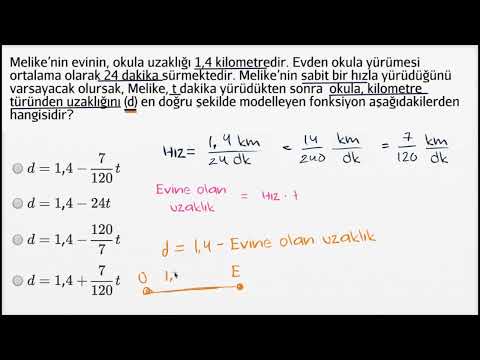 Melike'nin evinin, okula uzaklığı 1,4 kilometredir. Evden okula yürümesi
ortalama olarak 24 dakika sürmektedir. Melike'nin sabit bir hızla yürüdüğünü
varsayacak olursak, Melike, t dakika yürüdükten sonra okula, kilometre
türünden uzaklığını (d) en doğru şekilde modelleyen fonksiyon aşağıdakilerden
hangisidir?
Hız = 1,4 km / 24 dk = 14 km / 240 dk = 7 km / 120 dk
d = 1,4 − 7/120 t
d = 1,4 − 24t
d = 1,4 − 120/7 t
d = 1,4 + 7/120 t
Evine olan uzaklık = Hız · t
d = 1,4 - Evine olan uzaklık
O 1, E